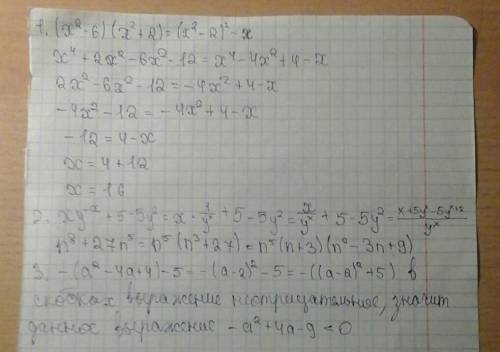 1. (x²-6)(x²+2)=(x²-2)²-x
x⁴+2x²-6x²-12=x⁴-4x²+4-x
2x²-6x²-12=-4x²+4-x
-4x²-12=-4x²+4-x
-12=4-x
x=4+12
x=16
2. xy⁻ˣ+5-5y²=x·1/yˣ+5-5y²=x/yˣ+5-5y²=(x+5yˣ-5yˣ⁺²)/yˣ
n⁸+27n⁵=n⁵(n³+27)=n⁵(n+3)(n²-3n+9)
3. -(a²-4a+4)-5=-(a-2)²-5=-((a-2)²+5) в
скобках выражение неотрицательное, значит
данное выражение -a²+4a-9<0